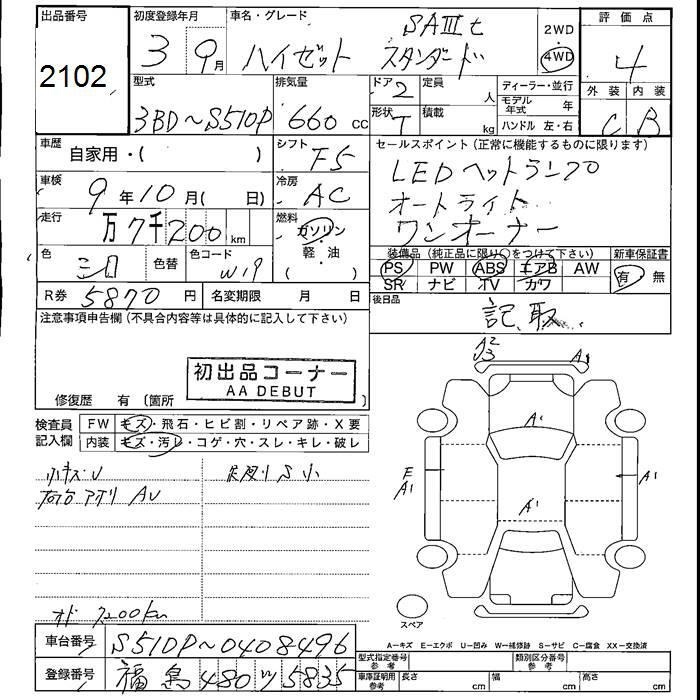 出品番号
2102
初度登録年月
3 9月
車名・グレード
SAⅢt
ハイゼット スタンダード
2WD
・
4WD
評価点
4
外装 内装
C B
型式
3BD~S510P
排気量
660 cc
ドア 2
形状 T
定員 人
積載 kg
ディーラー・並行
モデル年式 年
ハンドル 左・右
車歴
自家用・( )
シフト
F5
セールスポイント (正常に機能するものに限ります)
LEDヘットランプ
オートライト
ワンオーナー
車検
9年10月( 日)
冷房
AC
走行
万7千200km
燃料
ガソリン
軽・油
( )
色
シロ
色替
色コード
W19
装備品 (純正品に限り○をつけて下さい)
PS PW ABS エアB AW
SR ナビ TV カワ
新車保証書
有 無
R券 5870 円
名変期限 月 日
後日品
記、取
注意事項申告欄 (不具合内容等は具体的に記入して下さい)
初出品コーナー
AA DEBUT
修復歴 有 〔箇所 〕
検査員
記入欄
FW キズ・飛石・ヒビ割・リペア跡・X要
内装 キズ・汚レ・コゲ・穴・スレ・キレ・破レ
小キズU
荷台アオリ AU
S小
オド 7200km
A2
3
A1
A1
E
A1
A1
A1
スペア
A-キズ E-エクボ U-凹み W-補修跡 S-サビ C-腐食 XX-交換済
車台番号 S510P~0408496
登録番号 福島480ツ5835
型式指定番号
参考
類別区分番号
参考
車庫証明用
参考
長さ cm
幅 cm
高さ cm